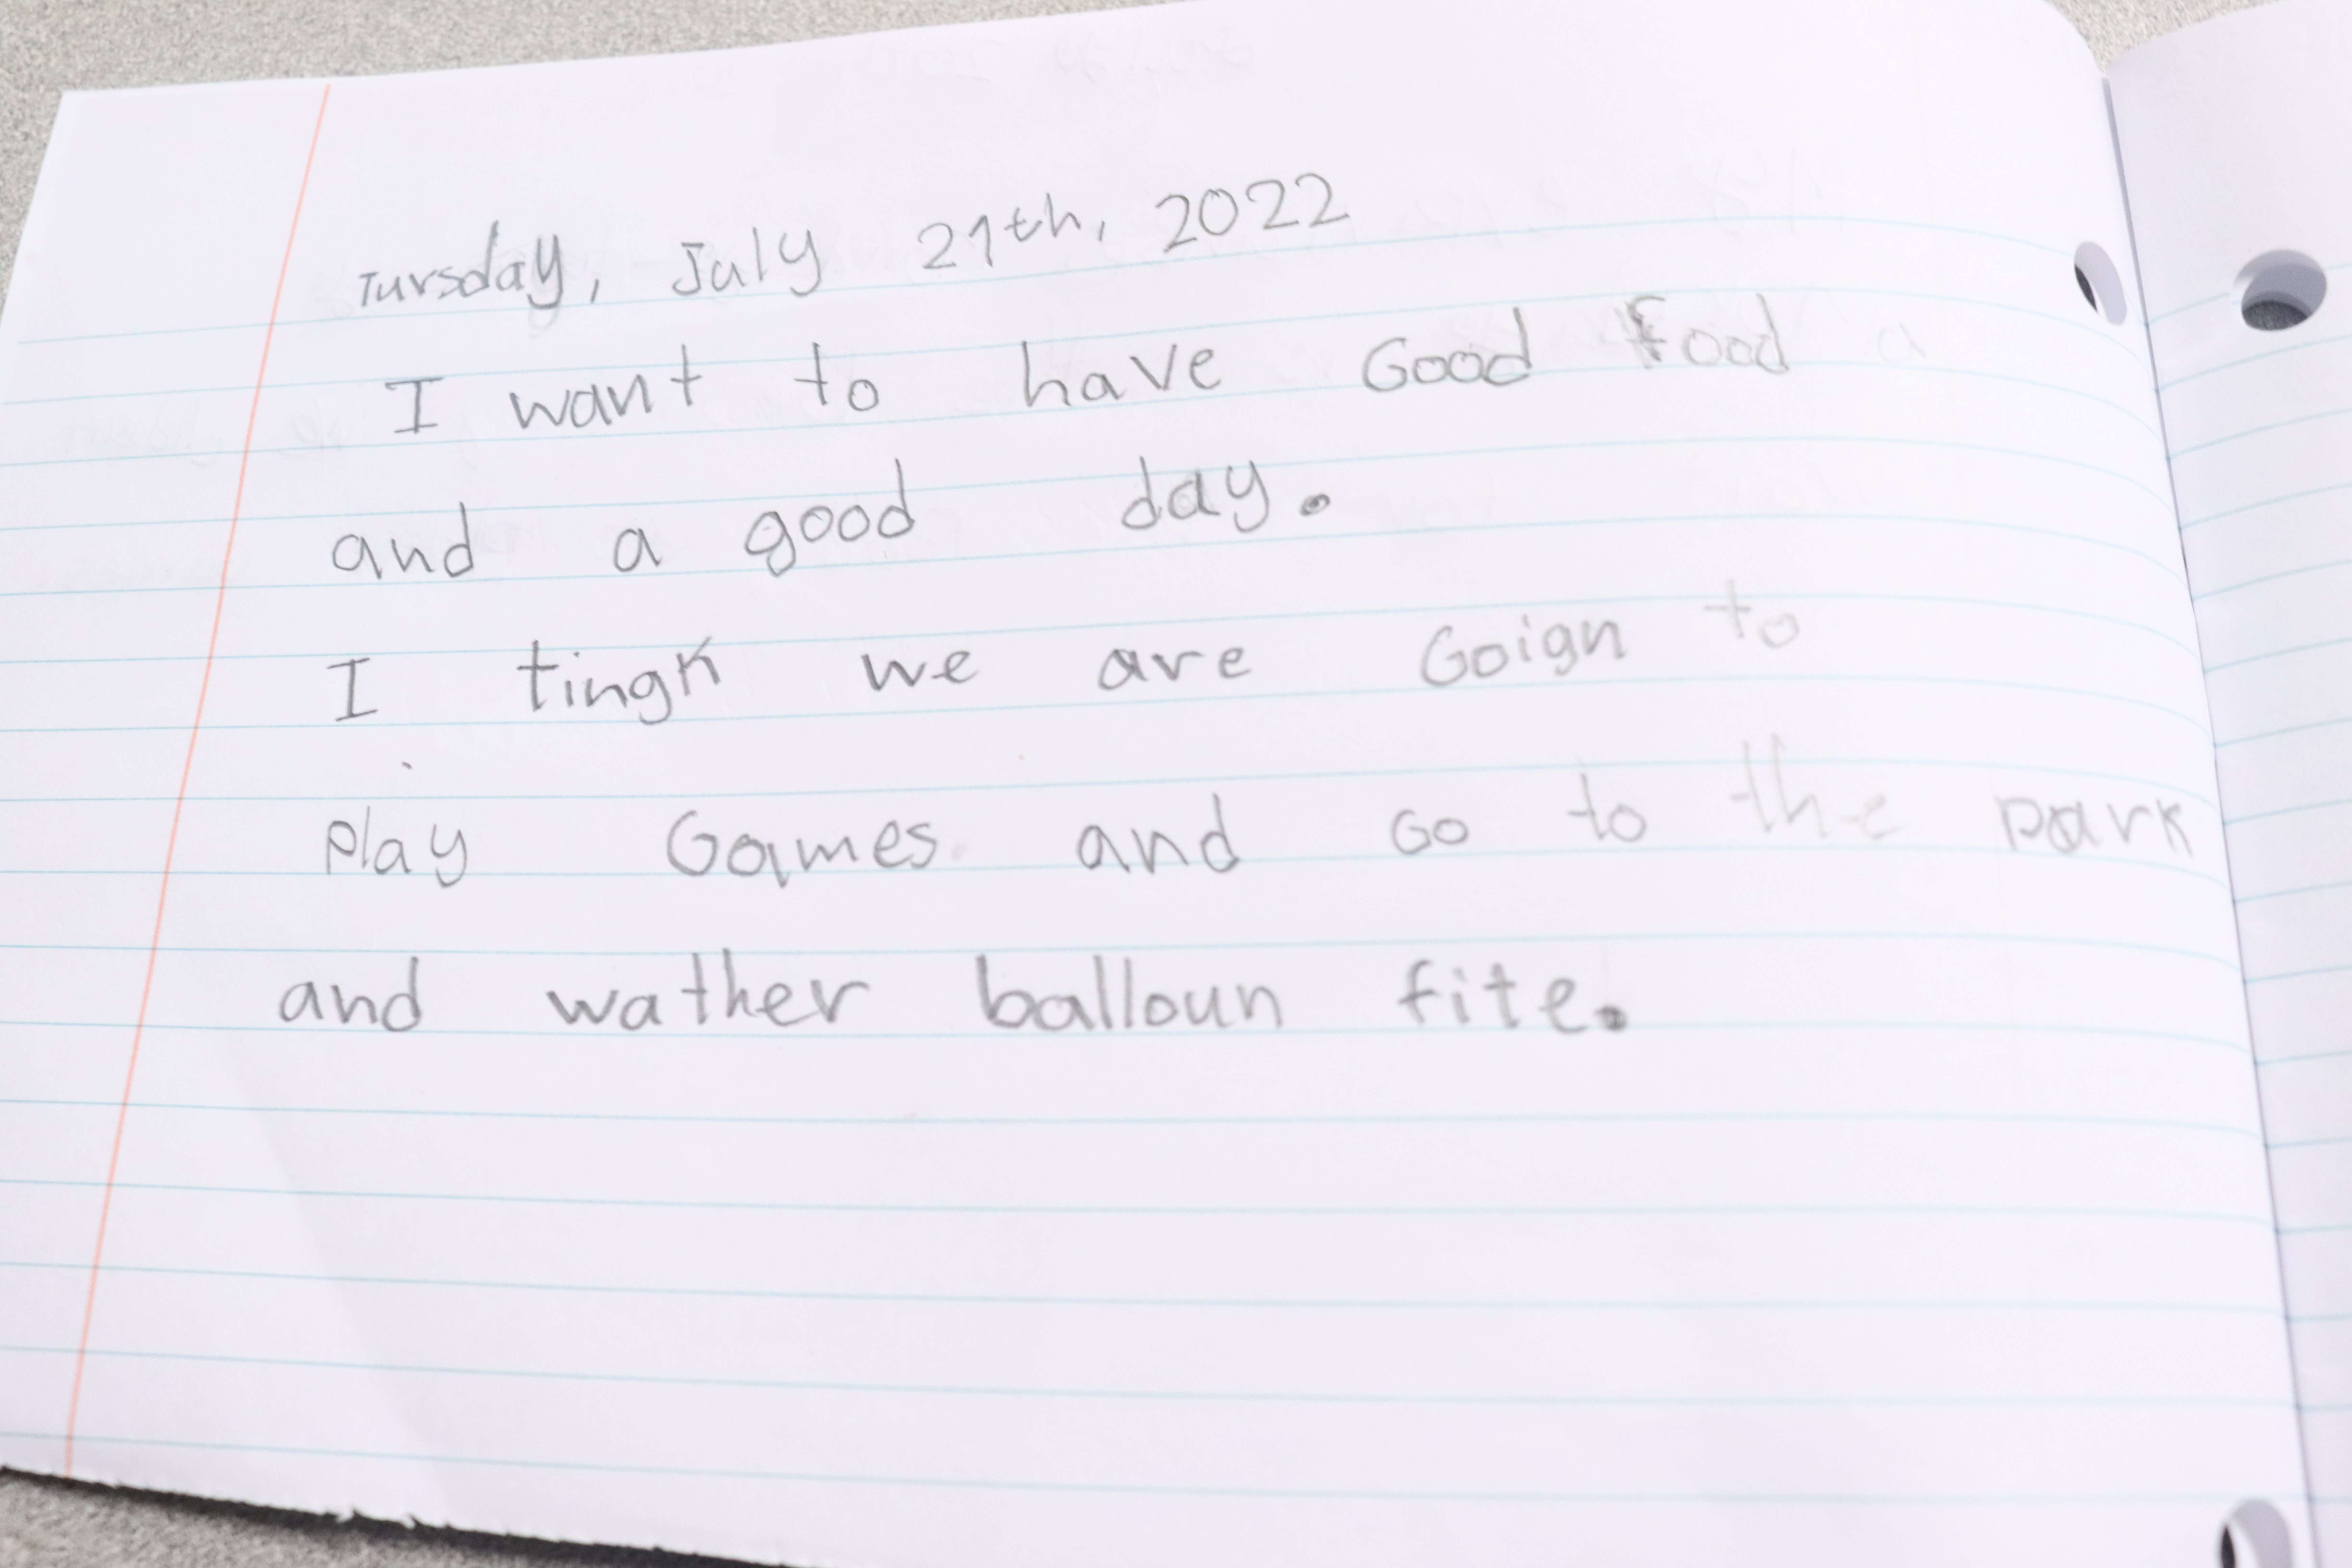 Tursday, July 21th, 2022
I want to have Good food
and a good day.
I tingk we are Goign to
play Games and Go to the park
and wather balloun fite.